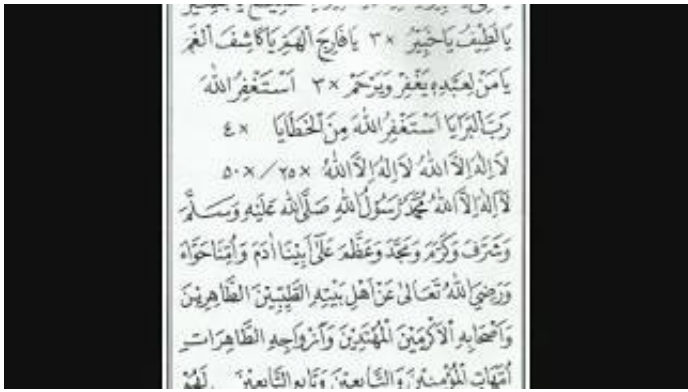 يَالَطِيْفُ يَاخَبِيْرُ ×٣ يَافَارِجَ الْهَمِّ يَاكَاشِفَ الْغَمِّ
يَامَنْ لِعَبْدِهِ يَغْفِرُ وَيَرْحَمُ ×٣ اَسْتَغْفِرُ اللهَ
رَبَّ الْبَرَايَا اَسْتَغْفِرُ اللهَ مِنَ الْخَطَايَا ×٤
لَااِلٰهَ اِلَّا اللهُ لَااِلٰهَ اِلَّا اللهُ ×٢٥/×٥٠
لَااِلٰهَ اِلَّا اللهُ مُحَمَّدٌ رَسُوْلُ اللهِ صَلَّى الله عَلَيْهِ وَسَلَّمَ
وَشَرَّفَ وَكَرَّمَ وَمَجَّدَ وَعَظَّمَ عَلَى اَبِيْنَا اٰدَمَ وَاُمِّنَا حَوَّاءَ
وَرَضِيَ اللهُ تَعَالَى عَنْ اَهْلِ بَيْتِهِ الطَّيِّبِيْنَ الطَّاهِرِيْنَ
وَاَصْحَابِهِ الْاَكْرَمِيْنَ الْمُهْتَدِيْنَ وَاَزْوَاجِهِ الطَّاهِرَاتِ
اُمَّهَاتِ الْمُؤْمِنِيْنَ وَالتَّابِعِيْنَ وَتَابِعِ التَّابِعِيْنَ لَهُمْ